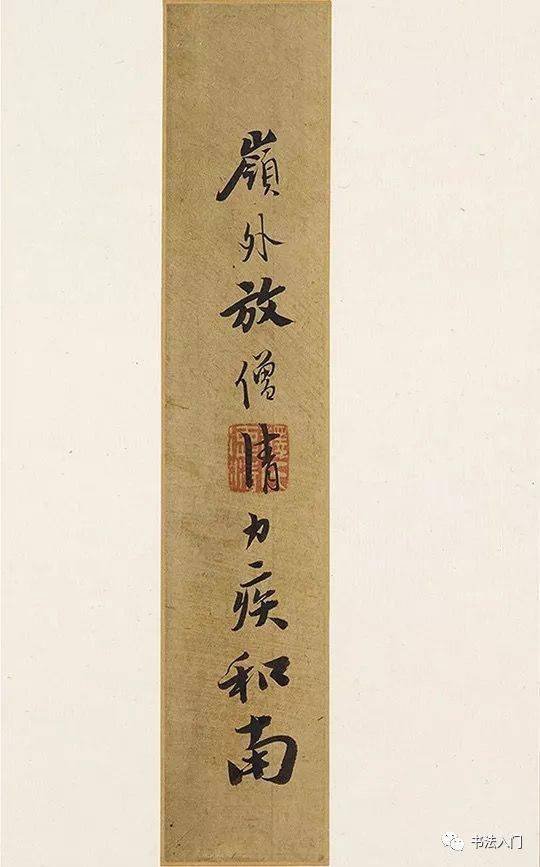 嶺外放僧清力疾和南
书法入门